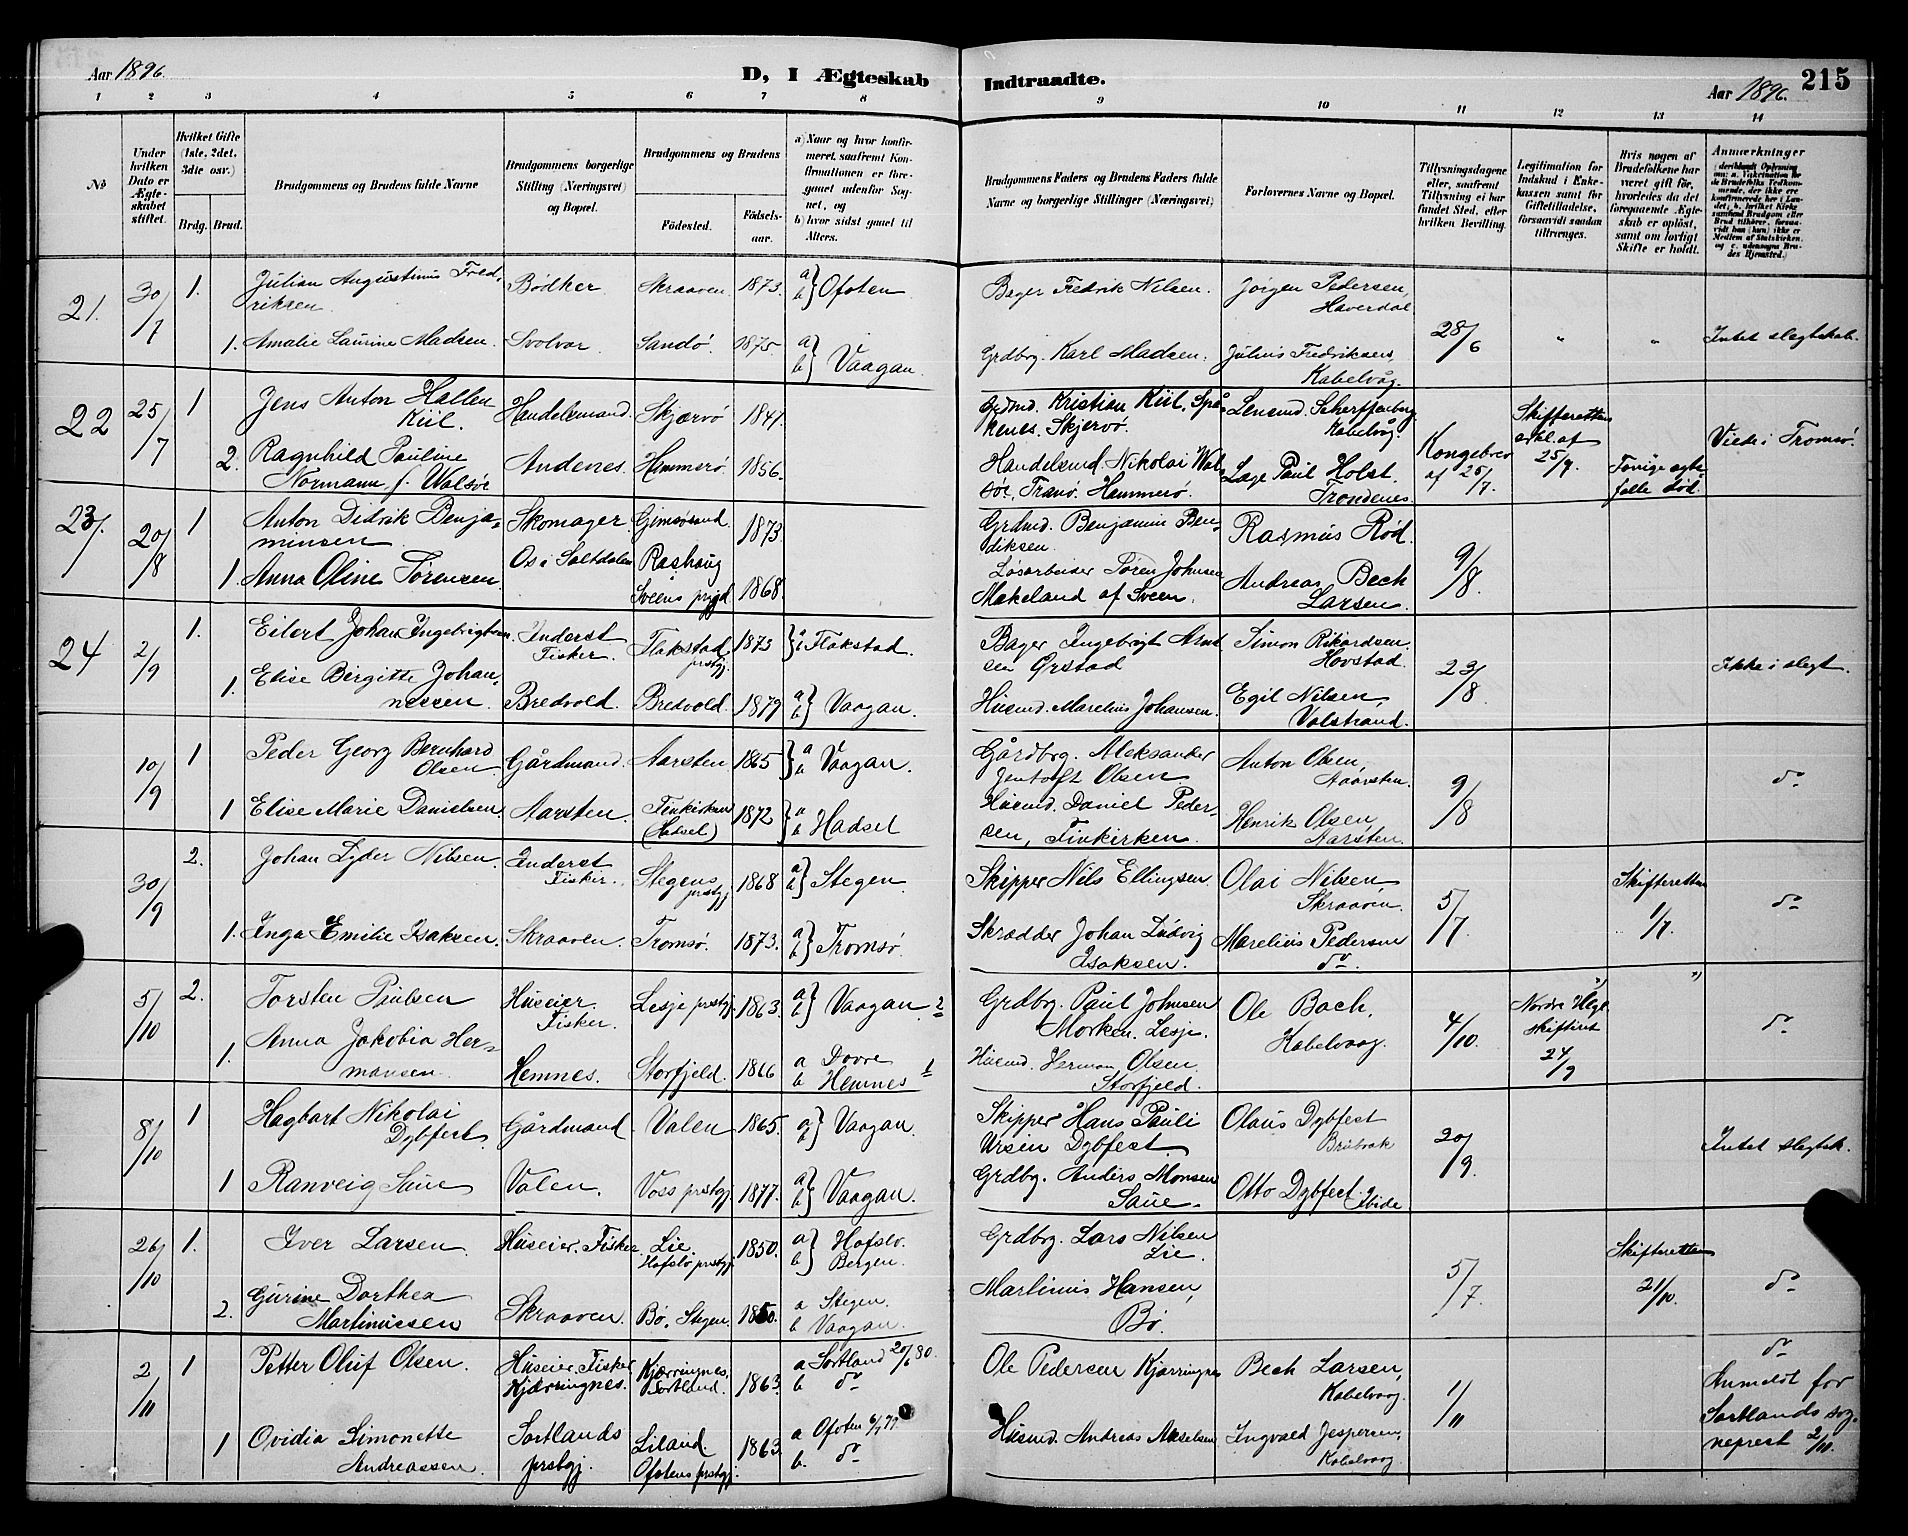 Aar 1896.
D, I Ægteskab
Indtraadte.
Aar 1896.
215
1 2 3 4 5 6 7 8 9 10 11 12 13 14
No
Under hvilken Dato er Ægteskabet stiftet.
Hvilket Gifte (1ste, 2det, 3die osv.)
Brdg. Brud.
Brudgommens og Brudens fulde Navne
Brudgommens borgerlige Stilling (Næringsvei) og Bopæl.
Brudgommens og Brudens
Fødested.
Fødselsaar.
a) Naar og hvor konfirmeret, saafremt Konfirmationen er foregaaet udenfor Sognet, og
b) hvor sidst gaaet til Alters.
Brudgommens Faders og Brudens Faders fulde Navne og borgerlige Stillinger (Næringsvei)
Forlovernes Navne og Bopæl.
Tillysningsdagene eller, saafremt Tillysning ei har fundet Sted, efter hvilken Bevilling.
Legitimation for Indskud i Enkekassen samt for Giftetilladelse, forsaavidt saadan tiltrænges.
Hvis nogen af Brudefolkene har været gift før, hvorledes da det foregaaende Ægteskab er opløst, samt om lovligt Skifte er holdt.
Anmærkninger
21. 30/7 1. Julian Augustinus Fredriksen. Bødker Skraaven 1873. a b } Ofoten Bager Fredrik Nilsen. Jørgen Pedersen, Haverdal
1. Amalie Laurine Madsen. Svolvær. Sandø. 1875. a b } Vaagan. Grdbrg. Karl Madsen. Julius Fredriksen, Kabelvåg. 28/6 " " Intet slegtskab.
22 25/7 1 Jens Anton Hallen Kiil. Handelsmand. Skjærvø 1841. Grdmd. Kristian Kiil, Spåkenes. Skjervø. Lensmd. Scherffenberg Kabelvåg.
2. Ragnhild Pauline Normann f. Walsøe Andenes. Hammerø. 1856. Handelsmd. Nikolai Walsøe, Tranø, Hammerø. Læge Paul Holst. Trondenes. Kongebrev af 25/7. Skifteretten erkl. af 25/7. Forrige egtefelle død. Viede i Tromsø.
23. 20/8 1 Anton Didrik Benjaminsen Skomager. Gimsøsund. 1873. Grdmd. Benjamin Bendiksen. Rasmus Rød.
1. Anna Oline Tørensen Os i Saltdalen Rashaug Sveens prgjd 1868. Løsarbeider Tøren Johnsen Makeland af Sveen. Andreas Bech Larsen. 9/8
24 2/9 1. Eilert Johan Ingebrigtsen. Inderst Fisker. Flakstad prstgj. 1873 a b } Flakstad. Bager Ingebrigt Arntsen Ørstad Simon Rikardsen Hovstad.
1. Elise Birgitte Johannessen Bredvold. Bredvold. 1879 a b } Vaagan. Husmd. Marelius Johansen. Egil Nilsen, Valstrand. 23/8 Ikke i slegt.
10/9 1 Peder Georg Bernhard Olsen Gårdmand. Aarsten 1865 a b } Vaagan. Gårdbrg. Aleksander Jentoft Olsen Anton Olsen, Aaarsten.
1 Elise Marie Danielsen Aarsten. Finkirken (Hadsel) 1872 a b } Hadsel Husmd. Daniel Pedersen, Finkirken. Henrik Olsen, Aarsten. 9/8 do
30/9 2. Johan Lyder Nilsen. Inderst Fisker. Stegens prstgj. 1868 a b } Stegen. Skipper Nils Ellingsen. Olai Nilsen Skraaven.
1. Inga Emilie Isaksen. Skraaven. Tromsø. 1873. a b } Tromsø. Skrædder Johan Ludvig Isaksen. Marelius Pedersen do. 5/7 Skifteretten 1/7. do
5/10 2. Torsten Paulsen Huseier. Fisker. Lesje prstgj. 1863. a b } Vaagan 2 Grdbrg. Paul Johnsen Morken, Lesje. Ole Bach, Kabelvaag.
1. Anna Jakobia Hermansen. Hemnes. Storfjeld. 1866 a Dovre b Hemnes 1 Husmd. Herman Olsen Storfjeld. 4/10. Nordre Helgl. skifteret 24/9 " " do
8/10 1 Hagbart Nikolai Dybfest. Gårdmand Valen 1865. a b } Vaagan. Skipper Hans Pauli Ursin Dybfest. Olaus Dybfest
1 Ranveig Saue Valen. Voss prstgj. 1877. a b } Vaagan. Grdbg. Anders Monsen Saue. Otto Dybfest. Ibide 20/9. Intet slegtsk.
26/10 1. Iver Larsen. Huseier. Fisker. Lie. Hafslo prstgj. 1850. a b } Hafslo. Bergen. Grdbrg. Lars Nilsen Lie.
2. Gurine Dorthea Martinussen Skraaven. Bø, Stegen 1850. a Stegen. b Vaagan. Martinus Hansen, Bø. 5/7. Skifteretten 21/10. do
2/11 1 Petter Oluf Olsen. Huseier. Fisker Kjærringnes. Kjærringnes, Sortland. 1863. a Sortland 20/6 80. b do Ole Pedersen Kjærringnes Bech Larsen, Kabelvaag.
1 Ovidia Simonette Andreassen. Sortlands prstgj. Liland. Ofotens prstgj. 1863. a Ofoten 6/7 79 b. do Husmd. Andreas Akselsen Ingvald Jespersen, Kabelvaag. 1/11 do Anmeldt for Sortlands sogneprest 2/10.